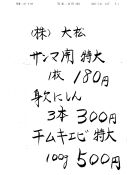 (株) 大松
サンマ開 特大
1枚 180円
身欠にしん
3本 300円
干ムキエビ 特大
100g 500円